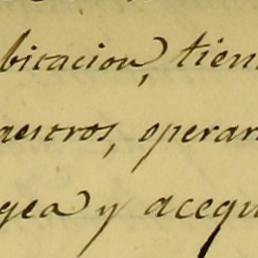 bitacion, tien
aestros, operar
gea y acequ